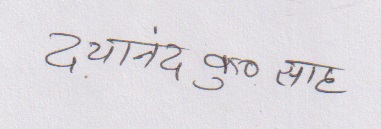 दयानंद कु० साह